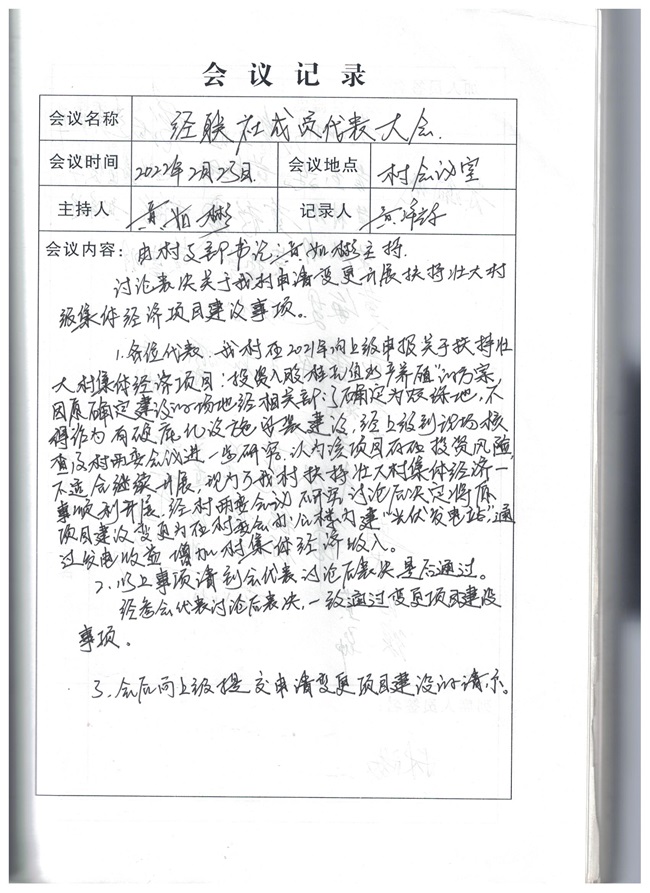 会议记录
会议名称 经联社成员代表大会.
会议时间 2022年2月23日. 会议地点 村会议室
主持人 黄如彬 记录人 黄
会议内容: 由村支部书记黄如彬主持.
讨论表决关于我村申请变更开展扶持壮大村
级集体经济项目建设事项。
1.各位代表、我村在2021年向上级申报关于扶持壮
大村集体经济项目:投资入股 水产养殖"的方案,
因原确定建设的场地经相关部门确定为 地,不
得作为有硬底化设施 建设,经上级到现场核
查及村两委会议进一步研究,认为该项目存在投资风险,
不适合继续开展,现为了我村扶持壮大村集体经济一
事顺利开展,经村两委会议研究讨论后决定将原
项目建设变更为在村委会办公楼内建"光伏发电站",通
过发电收益增加村集体经济收入。
2、以上事项请到会代表讨论后表决是否通过。
经参会代表讨论后表决,一致通过变更项目建设
事项。
3、会后向上级提交申请变更项目建设的请示。